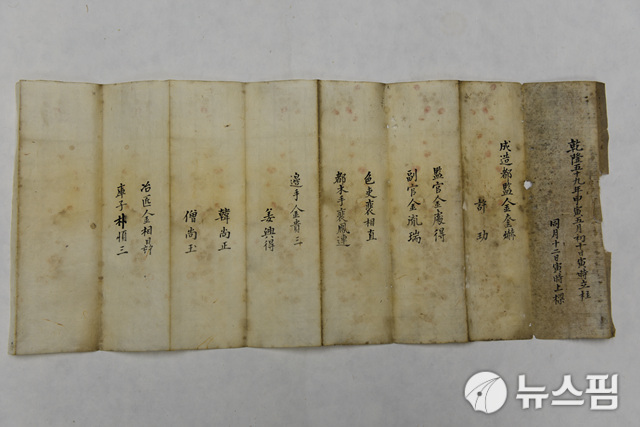 乾隆五十九年甲寅五月初十日寅時立柱
同月十二日寅時上樑
成造都監
許功
監官金慶得
副官金胤瑞
色吏裵相直
都木手裵鳳連
邊手金貴三
姜興得
韓尚正
僧尚玉
冶匠金相
庫子
뉴스핌